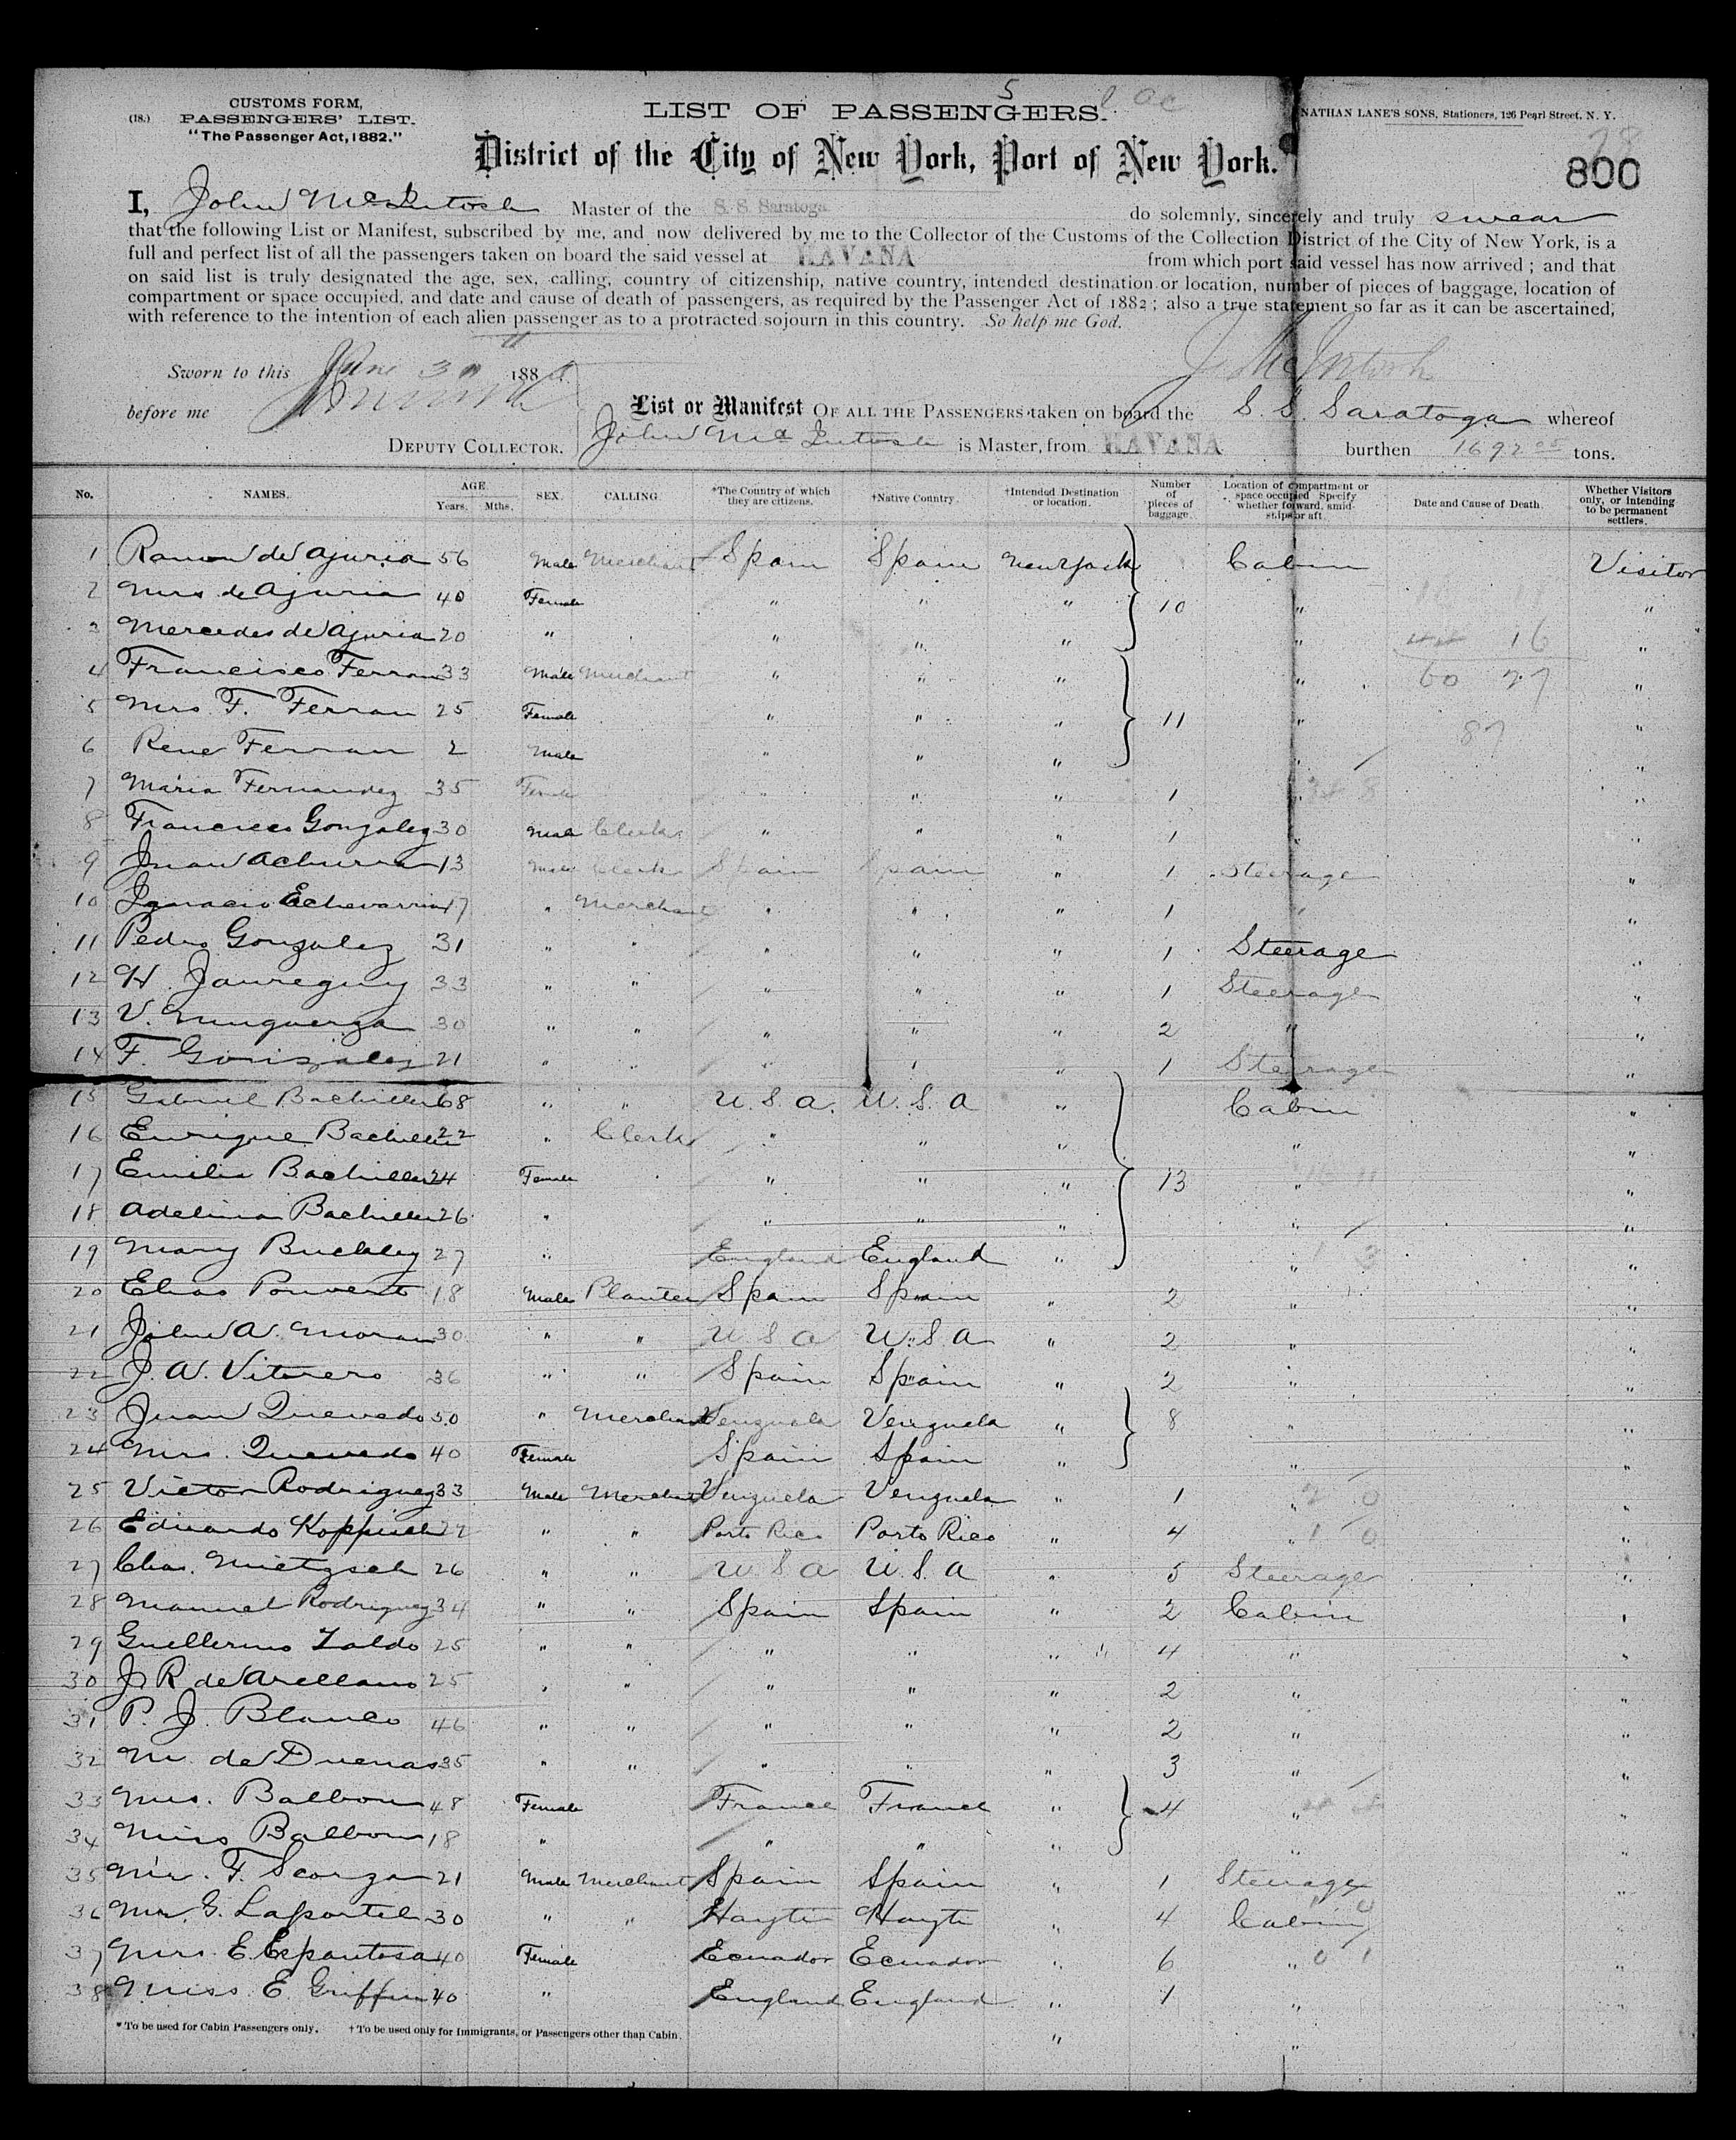 5
CUSTOMS FORM,
(18.) PASSENGERS' LIST.
"The Passenger Act, 1882."
LIST OF PASSENGERS.
NATHAN LANE'S SONS, Stationers, 126 Pearl Street, N. Y.
District of the City of New York, Port of New York.
800
I, John McIntosh Master of the S. S. Saratoga do solemnly, sincerely and truly swear
that the following List or Manifest, subscribed by me, and now delivered by me to the Collector of the Customs of the Collection District of the City of New York, is a
full and perfect list of all the passengers taken on board the said vessel at HAVANA from which port said vessel has now arrived ; and that
on said list is truly designated the age, sex, calling, country of citizenship, native country, intended destination or location, number of pieces of baggage, location of
compartment or space occupied, and date and cause of death of passengers, as required by the Passenger Act of 1882 ; also a true statement so far as it can be ascertained,
with reference to the intention of each alien passenger as to a protracted sojourn in this country. So help me God.
Sworn to this June 188 J McIntosh
before me List or Manifest OF ALL THE PASSENGERS taken on board the S. S. Saratoga whereof
DEPUTY COLLECTOR. John McIntosh is Master, from HAVANA burthen 1692 05 tons.
No. NAMES. AGE. Years. Mths. SEX. CALLING. *The Country of which they are citizens. †Native Country. †Intended Destination or location. Number of pieces of baggage. Location of compartment or space occupied Specify whether forward, amidships or aft. Date and Cause of Death. Whether Visitors only, or intending to be permanent settlers.
1 Ramon de Ajuria 56 Male Merchant Spain Spain New York Cabin Visitor
2 Mrs de Ajuria 40 Female " " " 10 " "
3 Mercedes de Ajuria 20 " " " " " 16 "
4 Francisco Ferran 33 Male Merchant " " " " 60 27 "
5 Mrs. F. Ferran 25 Female " " " 11 " 87 "
6 Rene Ferran 2 Male " " " " "
7 Maria Fernandez 35 Female " " " 1 " "
8 Francisco Gonzalez 30 Male Clerk " " " 1 " "
9 Juan Achurra 13 Male Clerk Spain Spain " 1 Steerage "
10 Ignacio Echevarria 17 " Merchant " " " 1 " "
11 Pedro Gonzalez 31 " " " " " 1 Steerage "
12 H. Jaureguy 33 " " " " " 1 Steerage "
13 V. Munguerza 30 " " " " " 2 " "
14 F. Gonzalez 21 " " " " " 1 Steerage "
15 Gabriel Bachiller 68 " " U. S. A. U. S. A " Cabin "
16 Enrique Bachiller 22 " Clerk " " " " "
17 Emilia Bachiller 24 Female " " " 13 " "
18 Adelina Bachiller 26 " " " " " "
19 Mary Buckley 27 " England England " " "
20 Elias Ponvert 18 Male Planter Spain Spain " 2 " "
21 John A. Moran 30 " " U S A U. S. A " 2 " "
22 J. A. Vitorero 36 " " Spain Spain " 2 " "
23 Juan Quevedo 50 " Merchant Venzuela Venzuela " 8 " "
24 Mrs. Quevedo 40 Female Spain Spain " " "
25 Victor Rodriguez 33 Male Merchant Venzuela Venzuela " 1 " "
26 Eduardo 27 " " Porto Rico Porto Rico " 4 " "
27 Chas. Nietzsch 26 " " U S A U. S. A " 5 Steerage "
28 Manuel Rodriguez 34 " " Spain Spain " 2 Cabin "
29 Guellermo Zaldo 25 " " " " " 4 " "
30 J. R. de Arellano 25 " " " " " 2 " "
31 P. J. Blanco 46 " " " " " 2 " "
32 M. de Duenas 35 " " " " " 3 " "
33 Mrs. Balbon 48 Female France France " 4 " "
34 Miss Balbon 18 " " " " " "
35 Mr. F. Scorza 21 Male Merchant Spain Spain " 1 Steerage "
36 Mr. G. 30 " " Hayti Hayti " 4 Cabin "
37 Mrs. E. Espantosa 40 Female Ecuador Ecuador " 6 " "
38 Miss E Griffin 40 " England England " 1 " "
* To be used for Cabin Passengers only. † To be used only for Immigrants, or Passengers other than Cabin. " "